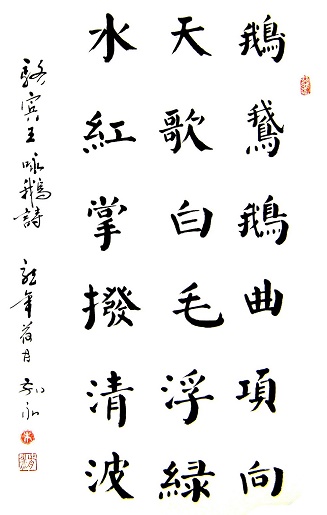 鵝鵞鵝曲項向
天歌白毛浮緑
水紅掌撥清波
駱宾王咏鵝詩 年荷月